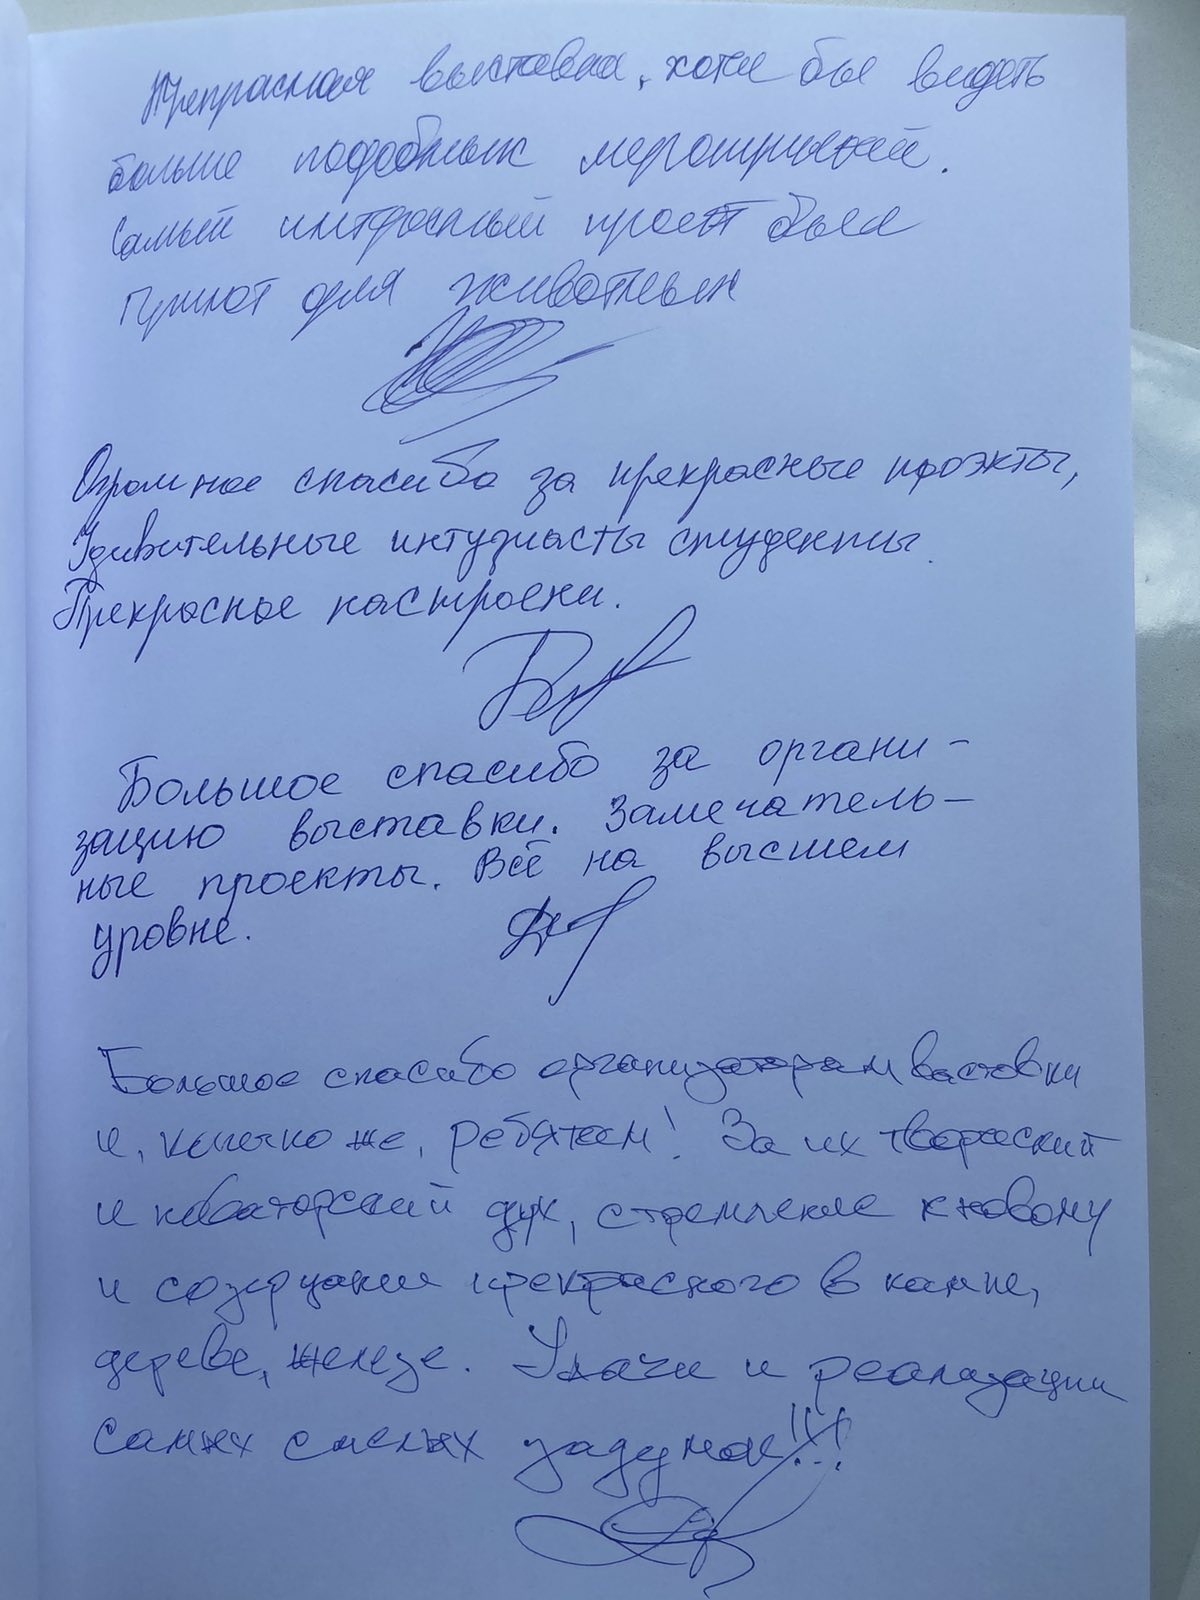 Прекрасная выставка, хотел бы видеть
больше подобных мероприятий.
Самый интересный проект был
Приют для животных
Огромное спасибо за прекрасные проэкты,
Удивительные интузиасты студенты.
Прекрасное настроени.
Большое спасибо за органи-
зацию выставки. Замечатель-
ные проекты. Всё на высшем
уровне.
Большое спасибо организаторам выставки
и, конечно же, ребятам! За их творческий
и новаторский дух, стремление к новому
и созерцание прекрасного в камне,
дереве, железе. Удачи и реализации
самых смелых задумок!!!